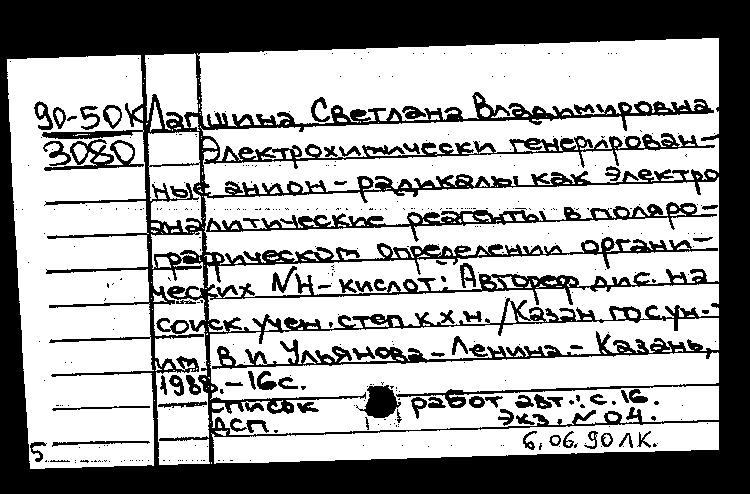 90-50К Лапшина, Светлана Владимировна.
3080 Электрохимически генерирован-
ные анион-радикалы как электро
аналитические реагенты в поляро-
графическом определении органи-
ческих NH-кислот: Автореф. дис. на
соиск. учен. степ. к.х.н. / Казан. гос. ун-т
им. В.И. Ульянова-Ленина. - Казань,
1988. - 16 с.
список работ авт.: с. 16.
ДСП. Экз. N 04.
6.06.90 ЛК.
5